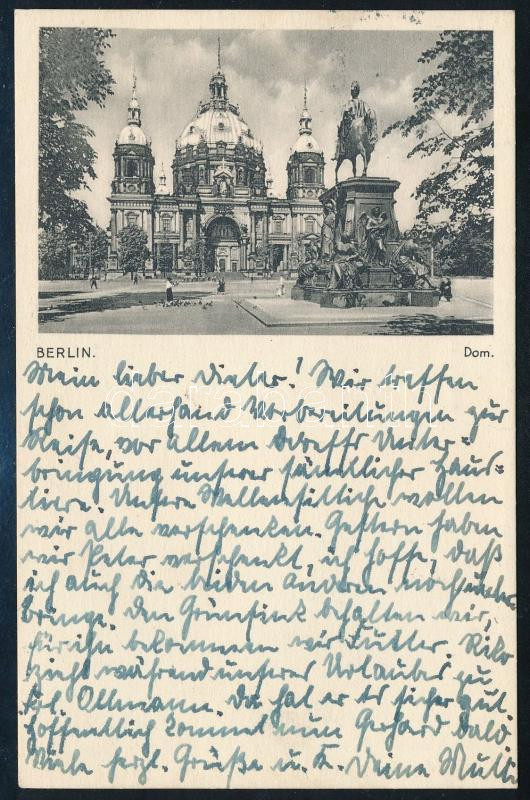 BERLIN. Dom.
Mein lieber Dieter! Wir treffen
schon allerhand Vorbereitungen zur
Reise, vor allem betreffs Unter-
bringung unserer sämtlicher Haus-
tiere. Unsere Wellensittiche wollen
wir alle verschenken. Gestern haben
wir Peter verschenkt, ich hoffe, daß
ich auch die beiden anderen noch
bringe. Den Grünfink behalten wir,
für ihn bekommen wir Futter.
zieht während unseres Urlaubes zu
Frl. Ollmann. Da hat er es sicher gut.
Hoffentlich kommt nun Gerhard bald
Viele herzl. Grüße u. K. Deine Mutti